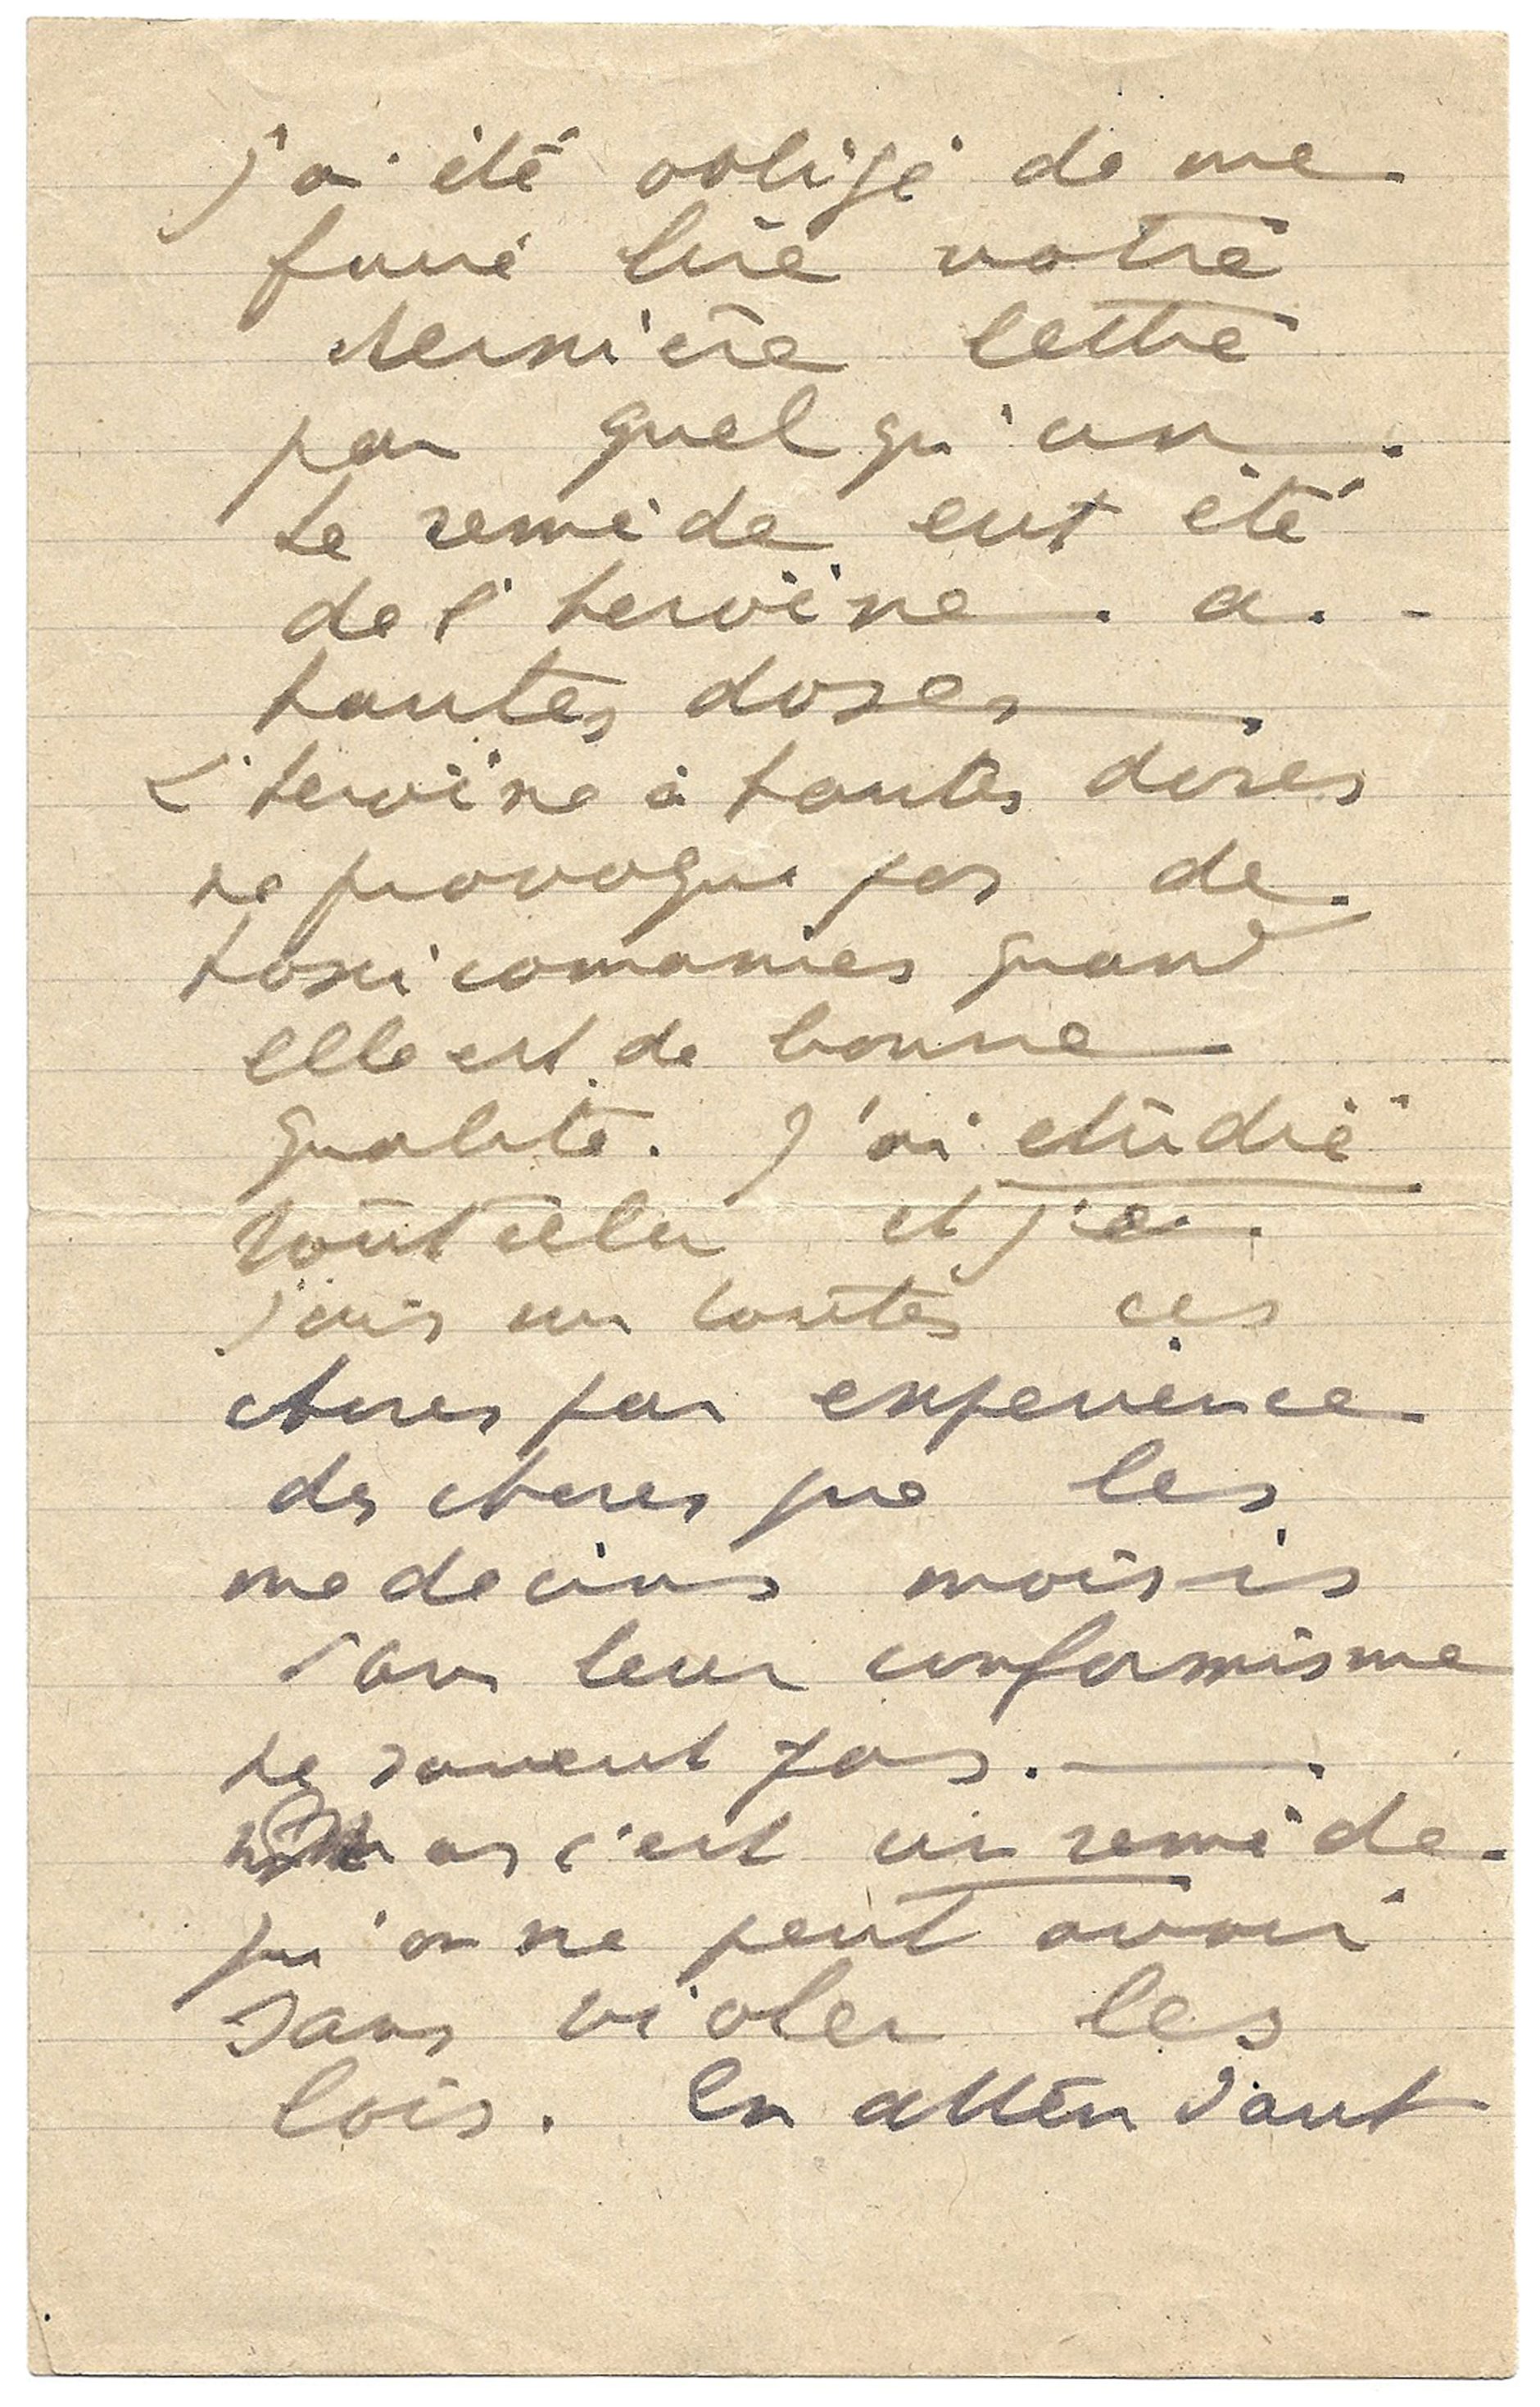 J'ai été obligé de me
faire lire votre
dernière lettre
par quelqu'un.
Le remède eut été
de l'heroïne. a. -
hautes doses.
L'heroïne à hautes doses
ne provoque pas de
toxicomanies quand
elle est de bonne
qualité. J'ai etudié
tout cela et je
sais sur toutes ces
choses par experience
des choses que les
medecins moisis
dans leur conformisme
ne savent pas.
c'est un remède
qu'on ne peut avoir
sans violer les
lois. En attendant